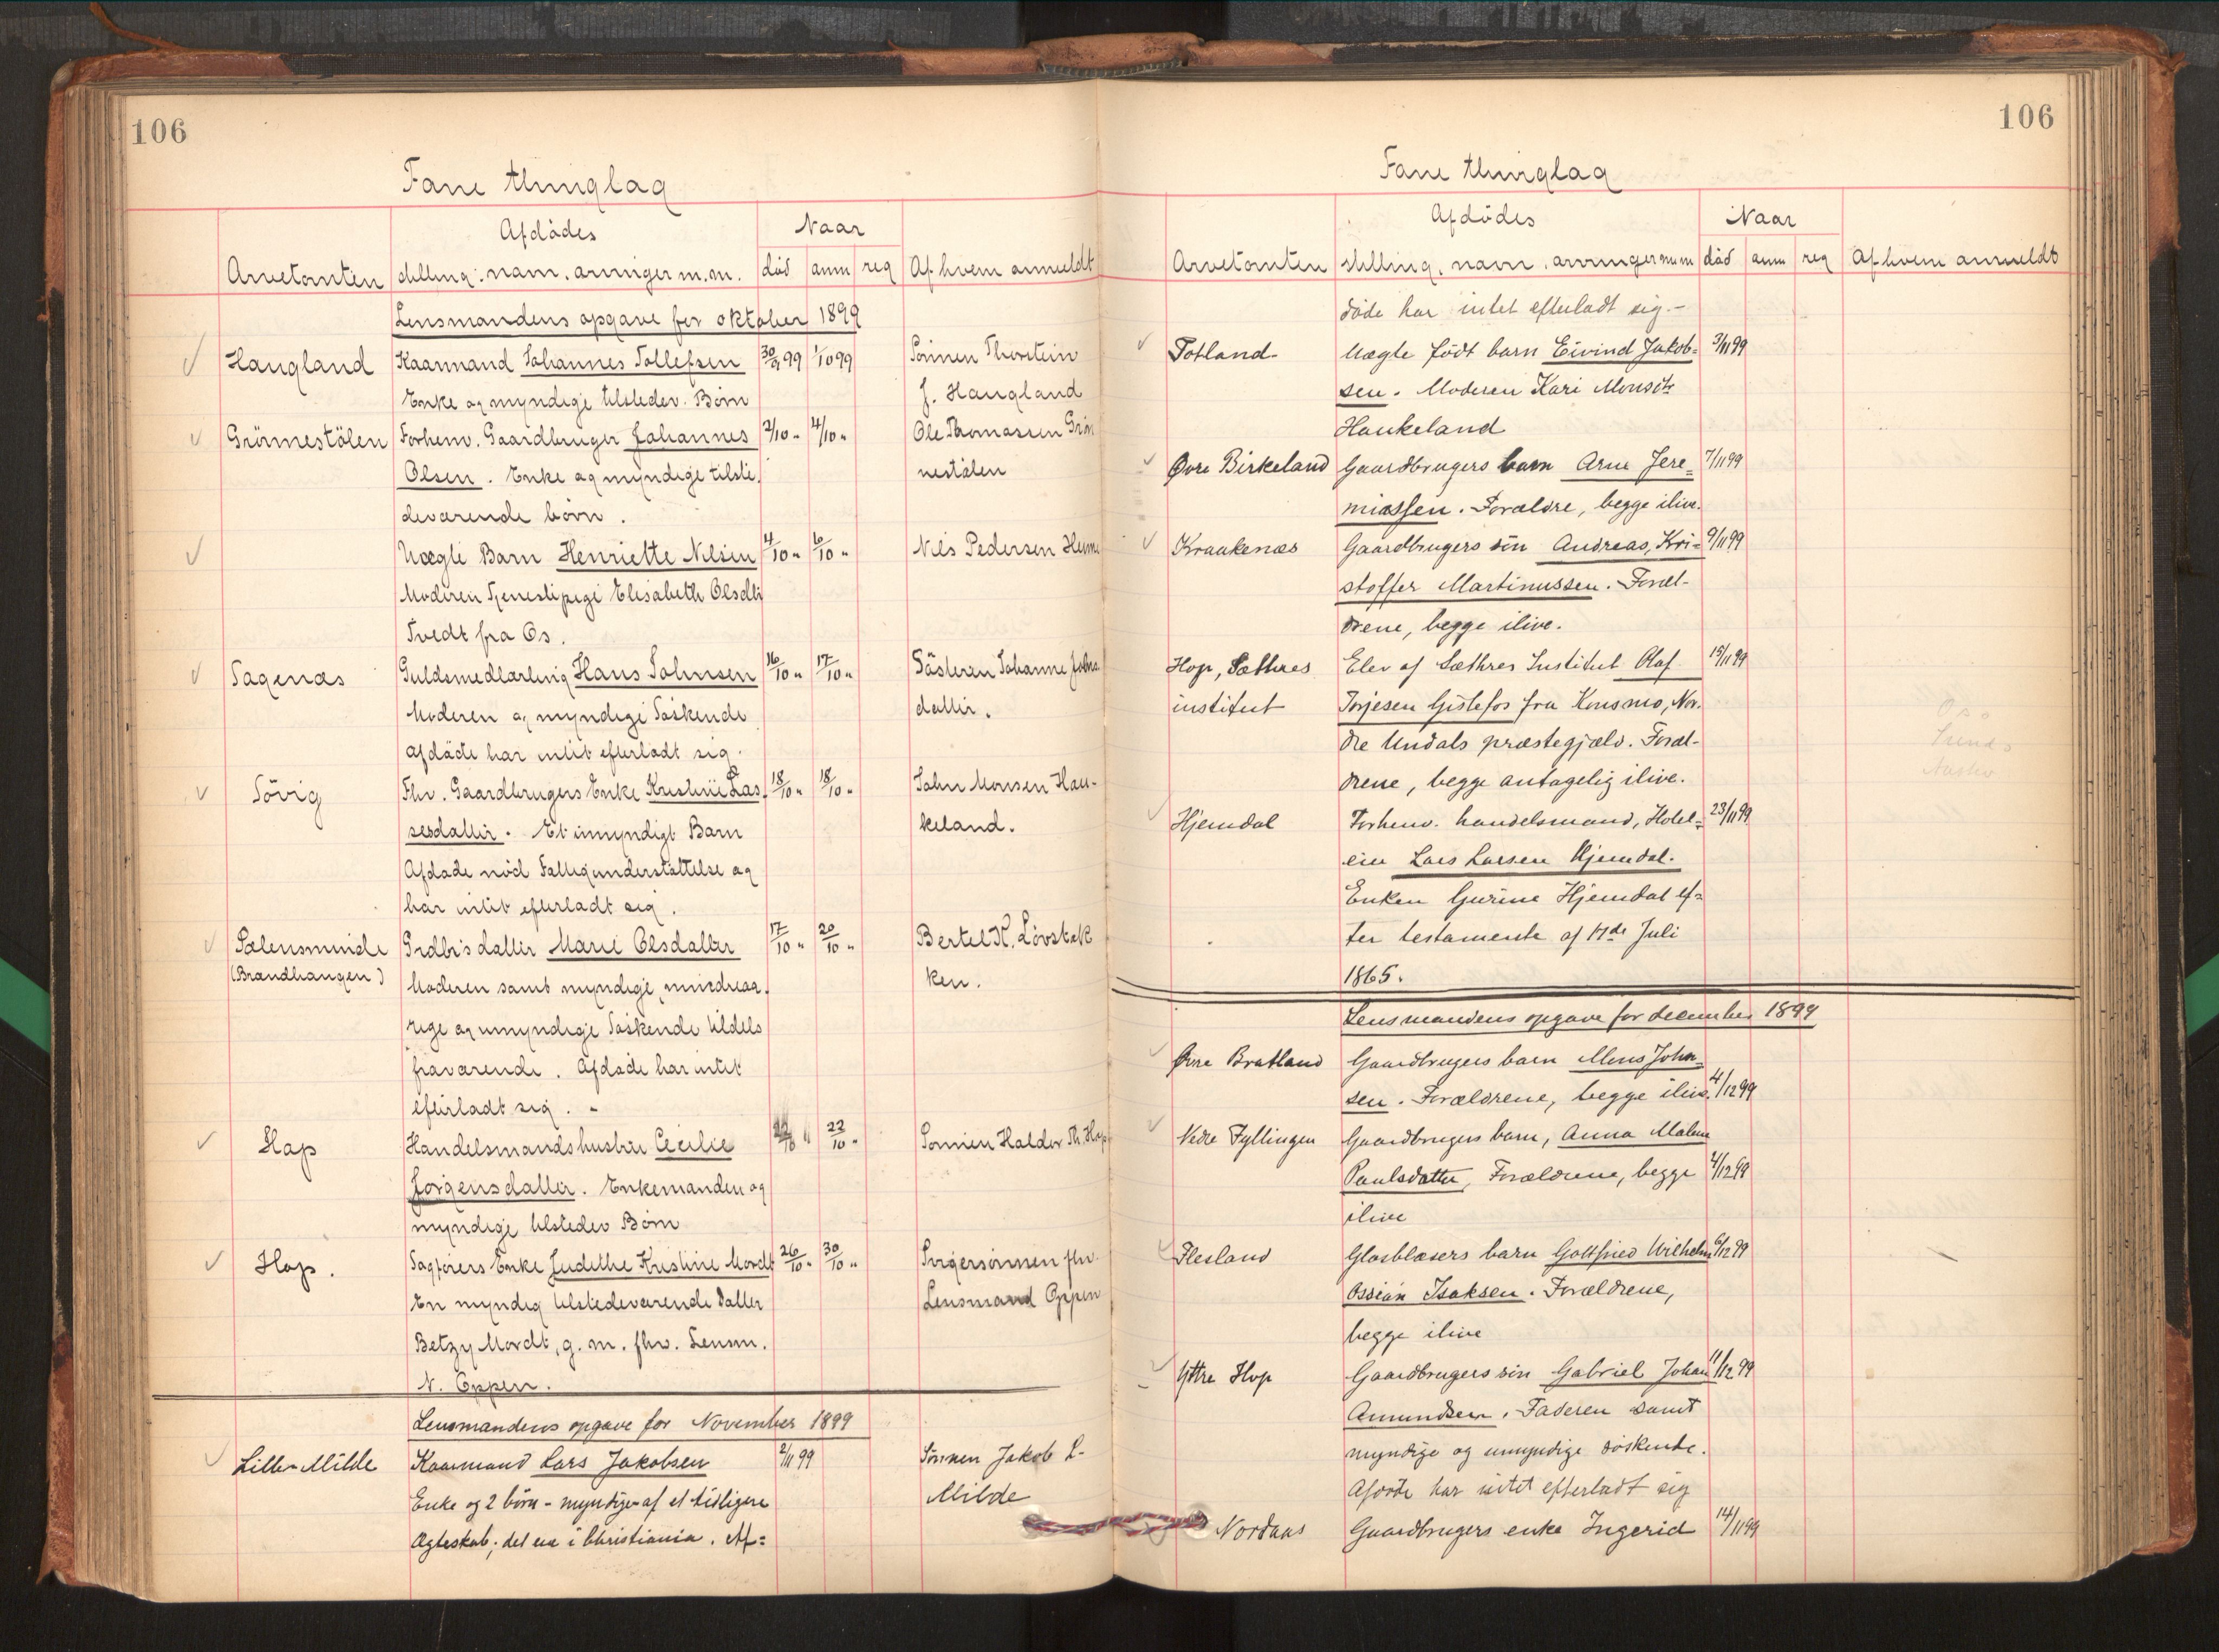 106
Fane thinglag
Afdødes
Naar
Arvetomten stilling, navn, arvinger m.m. død anm reg Af hvem anmeldt
Lensmandens opgave for oktober 1899
Haugland Kaarmand Johannes Tollefsen 30/9 99 1/10 99 Sønnen Thorstein
Enke og myndige tilstedev. Børn J. Haugland
Grönnestölen Forhenv. Gaardbruger Johannes 2/10 „ 4/10 „ Ole Thomassen Grön
Olsen. Enke og myndige tilste- nestölen
deværende børn.
Uægte Barn Henriette Nilsen 4/10 „ 6/10 „ Nils Pedersen
Moderen Tjenestepige Elisabeth Olsdtr
Tvedt fra Os.
Sagenæs Guldsmedlærling Hans Johnsen 16/10 „ 17/10 „ Søsteren Johanne Johns
Moderen og myndige Søskende datter.
afdøde har intet efterladt sig.
Sörvig Fhv. Gaardbrugers Enke Kristine Las- 18/10 „ 18/10 „ John Monsen Hau-
sesdatter. Et umyndigt Barn keland.
Afdøde nød Fattigunderstøttelse og
har intet efterladt sig.
Sælensminde Grdbrs datter Marie Olsdatter 17/10 „ 20/10 „ Bertel K. Løvstak
(Brandhaugen) Moderen samt myndige, mindreaa- ken.
rige og umyndige Søskende tildels
fraværende. Afdøde har intet
efterladt sig. -
Hop Handelsmandshustru Cecilie 22/10 „ Sønnen Haldor Th. Hop
Jørgensdatter. Enkemanden og
myndige tilstedev Børn
Hop. Sagførers Enke Judithe Kristine Mordt 26/10 „ 30/10 „ Svigersønnen fhv.
En myndig tilstedeværende Datter Lensmand Oppen
Betzy Mordt, g. m. fhv. Lensm.
N. Oppen.
Lensmandens opgave for November 1899
Lille-Milde Kaarmand Lars Jakobsen 2/11 99 Sønnen Jakob L-
Enke og 2 børn - myndige af et tidligere Milde
Ægteskab; det ene i Christiania. Af=
106
Fane thinglag
Afdødes
Naar
Arvetomten stilling, navn, arvinger m m død anm reg Af hvem anmeldt
døde har intet efterladt sig.-
Totland- Uægte født barn Eivind Jakob= 3/11 99
sen. Moderen Kari Monsdtr
Haukeland
Øvre Birkeland Gaardbrugers barn Arne Jere= 7/11 99
miassen. Forældre, begge ilive.
Kraakenæs Gaardbrugers sön Andreas, Kri= 9/11 99
stoffer Martinussen. Foræl-
drene, begge ilive.
Hop, Sæthres Elev af Sæthres Institut Olaf 15/11 99
institut Torjesen Gislefos fra Konsmo, Nor-
dre Undals præstegjæld. Foræl-
drene, begge antagelig ilive.
Hjemdal Forhenv. handelsmand, Hotel= 23/11 99
eier Lars Larsen Hjemdal.
Enken Gurine Hjemdal ef=
ter testamente af 17de Juli
1865.
Lensmandens opgave for december 1899
Øvre Bratland Gaardbrugers barn Mons John=
sen. Forældrene, begge ilive. 4/12 99
Nedre Fyllingen Gaardbrugers barn, Anna Malene
Paulsdatter, Forældrene, begge 4/12 99
ilive
Flesland Glasblæsers barn Gottfried Wilhelm 6/12 99
Ossian Isaksen. Forældrene,
begge ilive
Yttre Hop Gaardbrugers sön Gabriel Johan 11/12 99
Amundsen. Faderen samt
myndige og umyndige søskende.
Afdøde har intet efterladt sig
Nordaas Gaardbrugers enke Ingerid 14/11 99